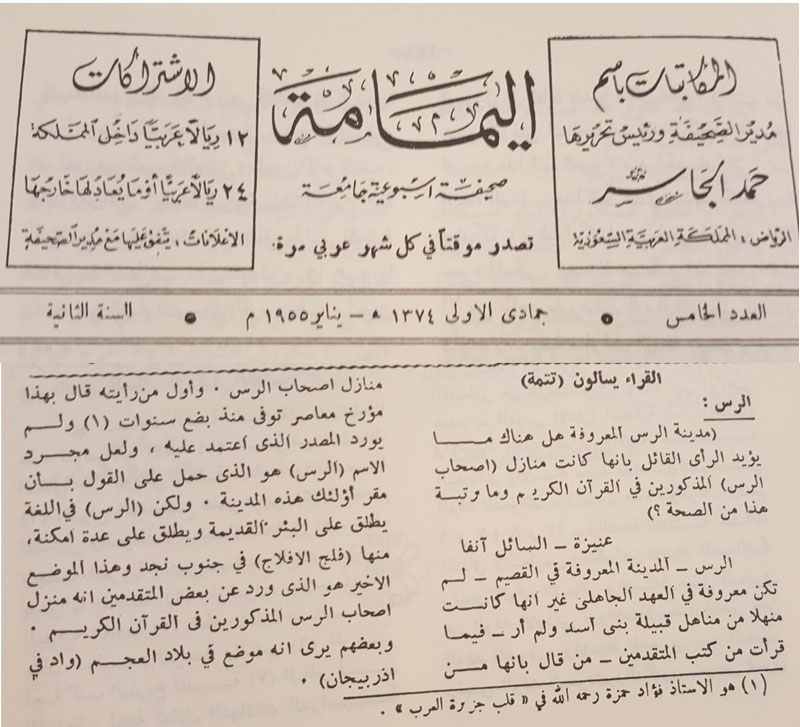 المكاتبات باسم
مدير الصحيفة ورئيس تحريرها
حمد الجاسر
الرياض : المملكة العربية السعودية
اليمامة
صحيفة اسبوعية جامعة
تصدر موقتاً في كل شهر عربي مرة.
الاشتراكات
١٢ ريالاً عربياً داخل المملكة
٢٤ ريالاً عربياً أو ما يعادلها خارجها
الاعلانات : يتفق عليها مع مدير الصحيفة
العدد الخامس • جمادى الاولى ١٣٧٤ ه – يناير ١٩٥٥ م • السنة الثانية
القراء يسألون (تتمة)
الرس :
(مدينة الرس المعروفة هل هناك ما
يؤيد الرأى القائل بانها كانت منازل (اصحاب
الرس) المذكورين في القرآن الكريم وما رتبة
هذا من الصحة ؟)
عنيزة – السائل آنفا
الرس – المدينة المعروفة في القصيم – لم
تكن معروفة في العهد الجاهلى غير انها كانت
منهلا من مناهل قبيلة بنى أسد ولم أر – فيما
قرأت من كتب المتقدمين – من قال بانها من
منازل اصحاب الرس . وأول من رأيته قال بهذا
مؤرخ معاصر توفى منذ بضع سنوات (١) ولم
يورد المصدر الذى اعتمد عليه ، ولعل مجرد
الاسم (الرس) هو الذى حمل على القول بأن
مقر أولئك هذه المدينة . ولكن (الرس) في اللغة
يطلق على البئر القديمة ويطلق على عدة امكنة،
منها (فلج الافلاج) في جنوب نجد وهذا الموضع
الاخير هو الذى ورد عن بعض المتقدمين انه منزل
اصحاب الرس المذكورين فى القرآن الكريم .
وبعضهم يرى انه موضع في بلاد العجم (واد في
اذربيجان) .
(١) هو الاستاذ فؤاد حمزة رحمه الله في « قلب جزيرة العرب » .